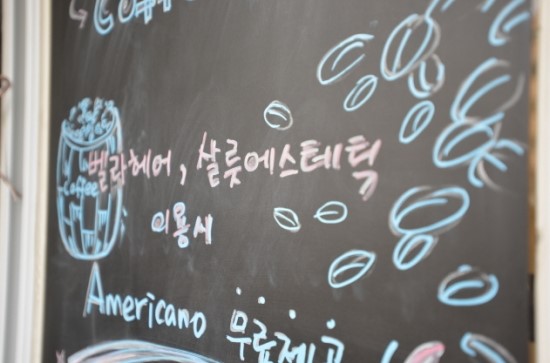 Coffee
벨라헤어, 살롯에스테틱
이용시
Americano 무료제공